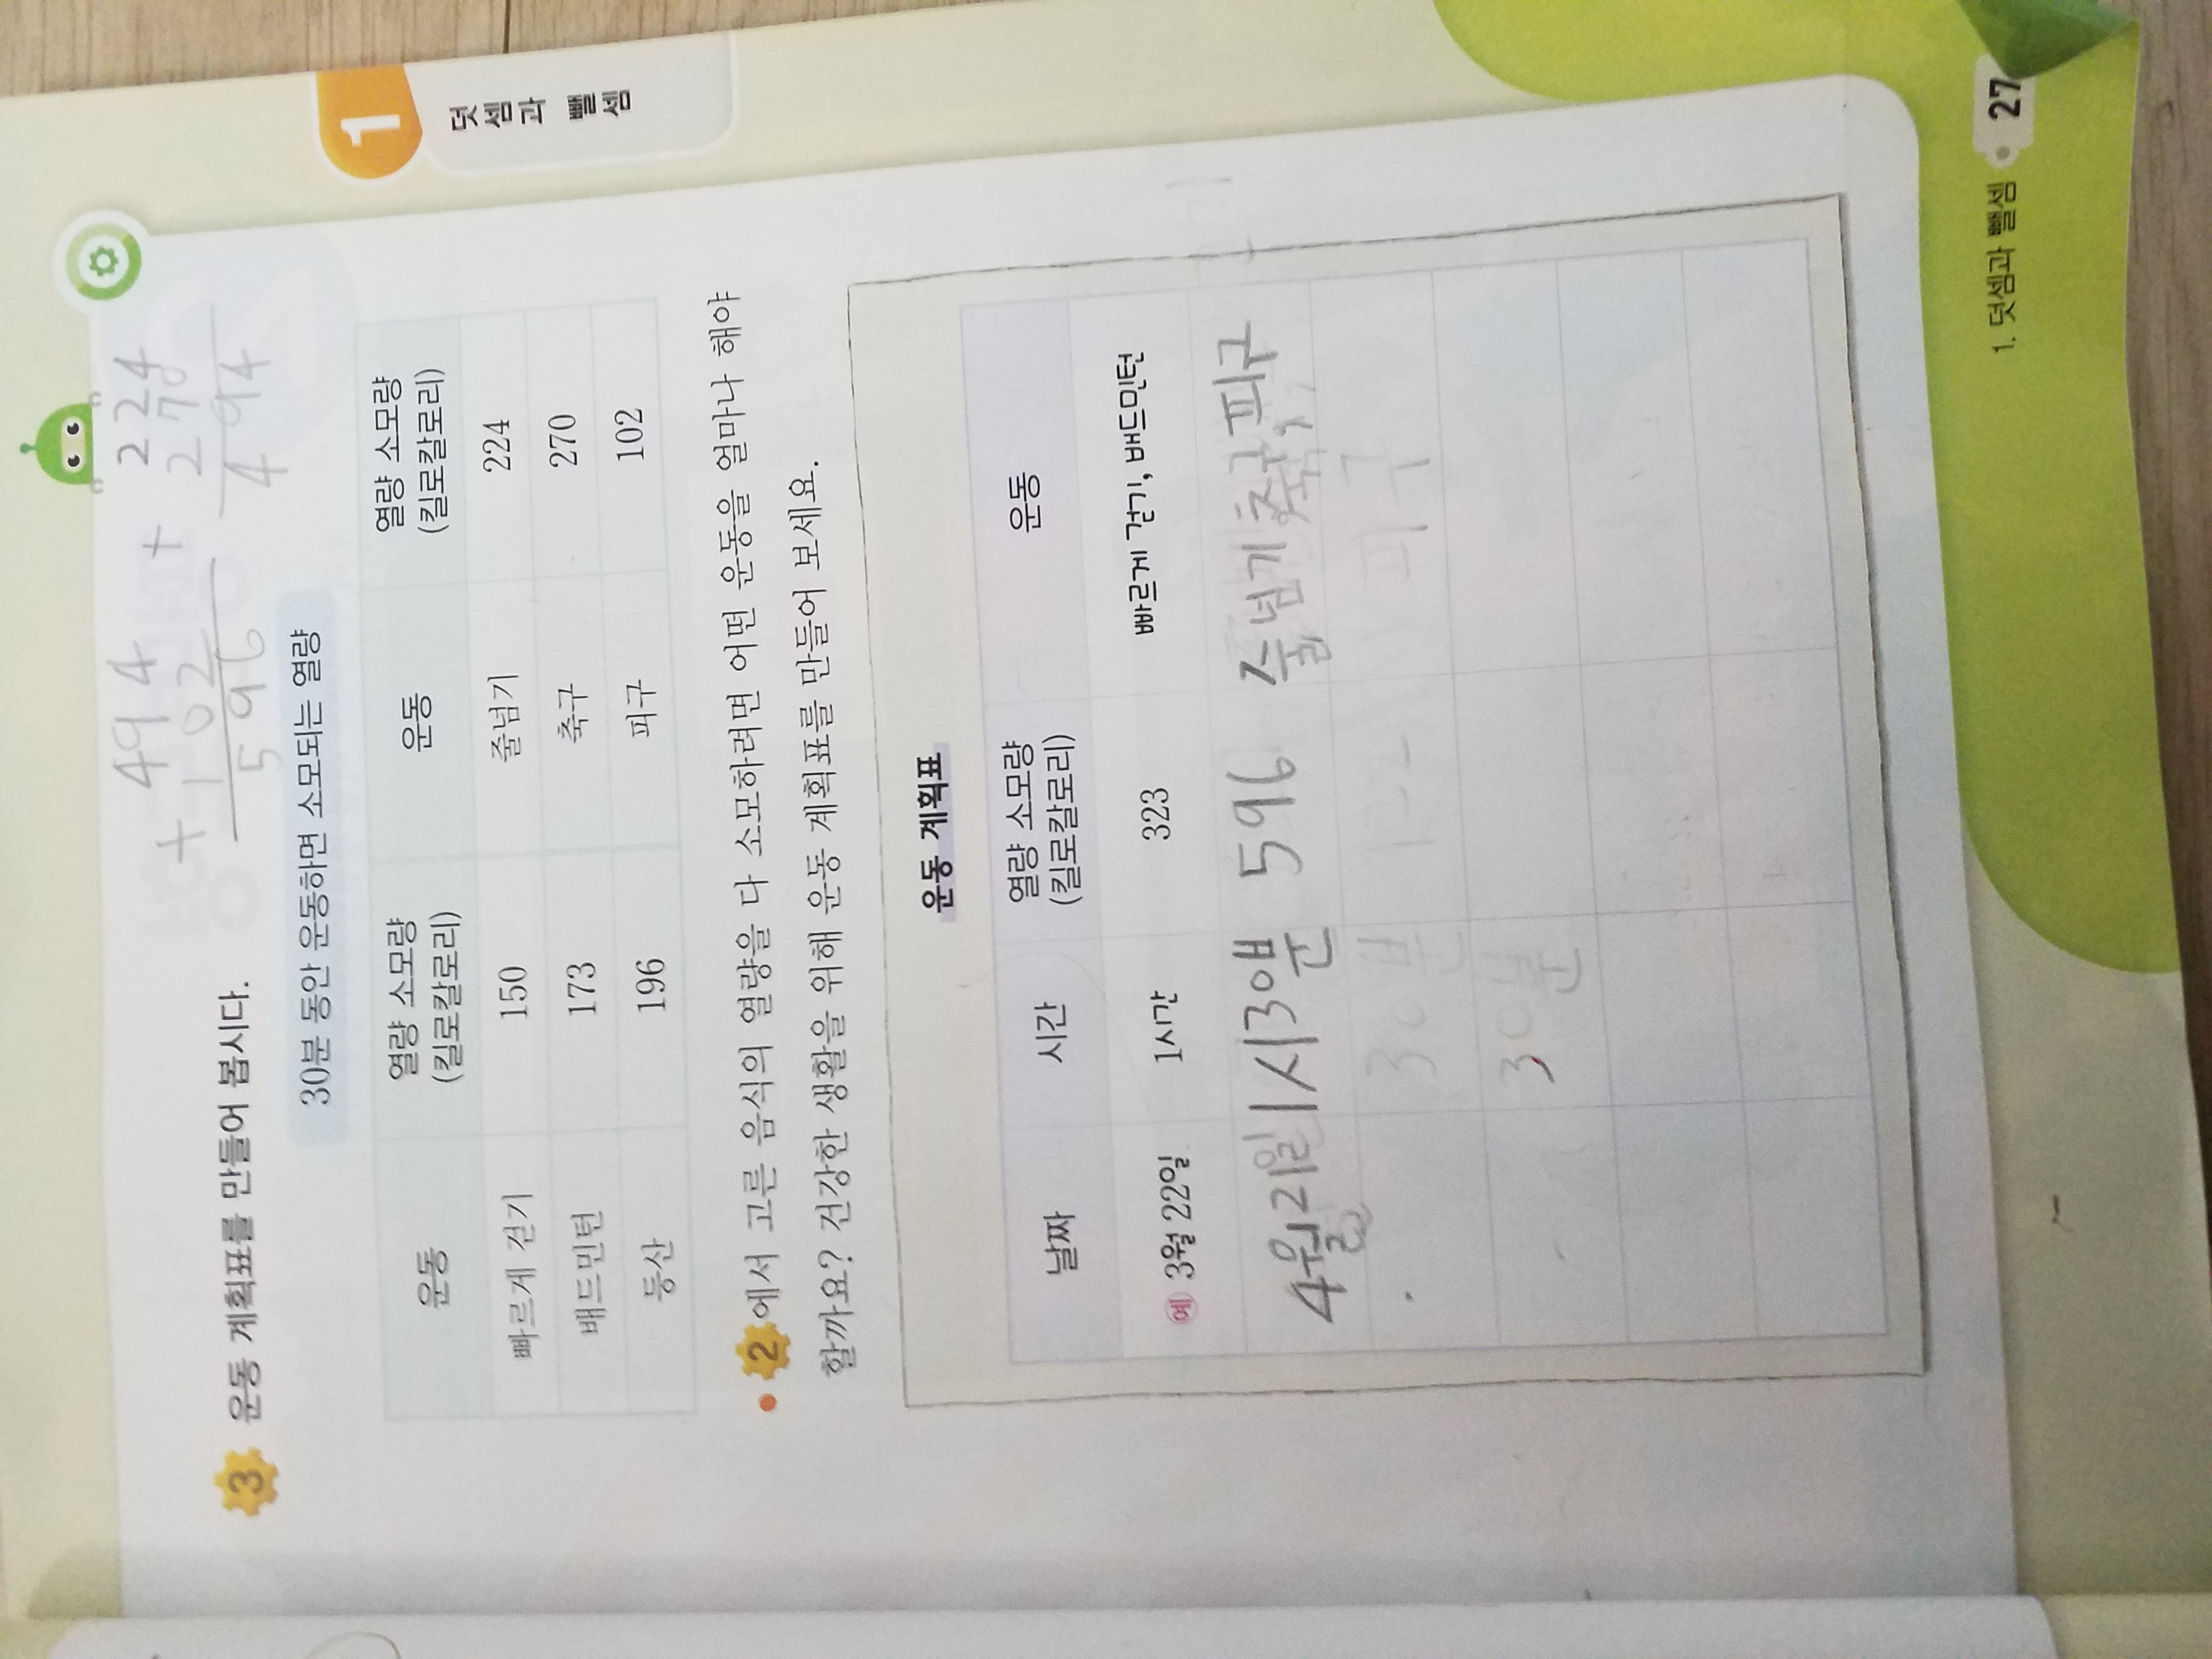 494
+ 102
596
224
+ 270
494
3 운동 계획표를 만들어 봅시다.
30분 동안 운동하면 소모되는 열량
운동 열량 소모량 (킬로칼로리) 운동 열량 소모량 (킬로칼로리)
빠르게 걷기 150 줄넘기 224
배드민턴 173 축구 270
등산 196 피구 102
• 2에서 고른 음식의 열량을 다 소모하려면 어떤 운동을 얼마나 해야
할까요? 건강한 생활을 위해 운동 계획표를 만들어 보세요.
운동 계획표
날짜 시간 열량 소모량 (킬로칼로리) 운동
예 3월 22일 1시간 323 빠르게 걷기, 배드민턴
4월 21일 1시 30분 596 줄넘기, 축구, 피구
30분 피구
30분
1
덧셈과 뺄셈
1. 덧셈과 뺄셈 • 27